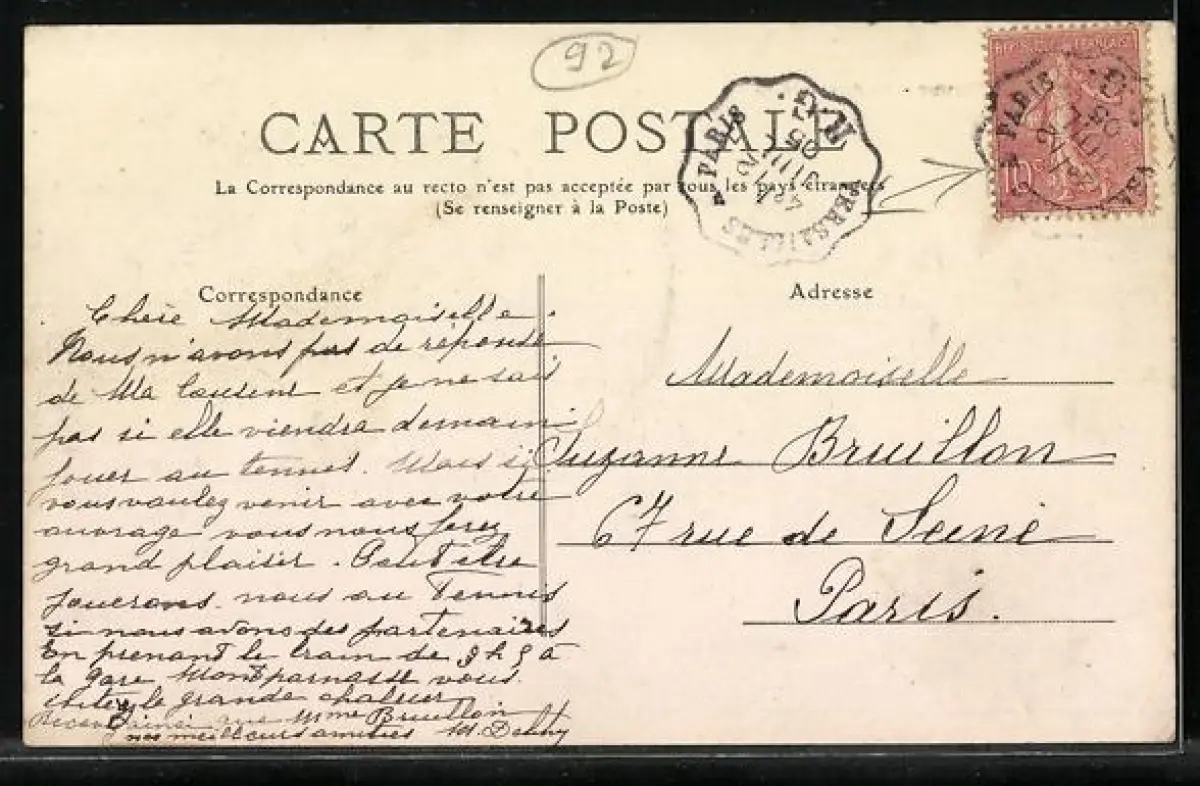 92
RÉPUBLIQUE FRANÇAISE
10
PARIS
VERSAILLES
R.G
05
CARTE POSTALE
La Correspondance au recto n'est pas acceptée par tous les pays étrangers
(Se renseigner à la Poste)
Correspondance
Chère Mademoiselle.
Nous n'avons pas de réponse
de Ma et je ne sais
pas si elle viendra demain
jouer au tennis. Mais si
vous voulez venir avec votre
ouvrage vous nous ferez
grand plaisir. Peut être
jouerons nous au Tennis
si nous avons des partenaires
En prenant le train de 3 h 5 à
la gare Montparnasse vous
évitez la grande chaleur
Recevez ainsi que Mme Bruillon
nos meilleurs amitiés M.
Adresse
Mademoiselle
Suzanne Bruillon
67 rue de Seine
Paris.